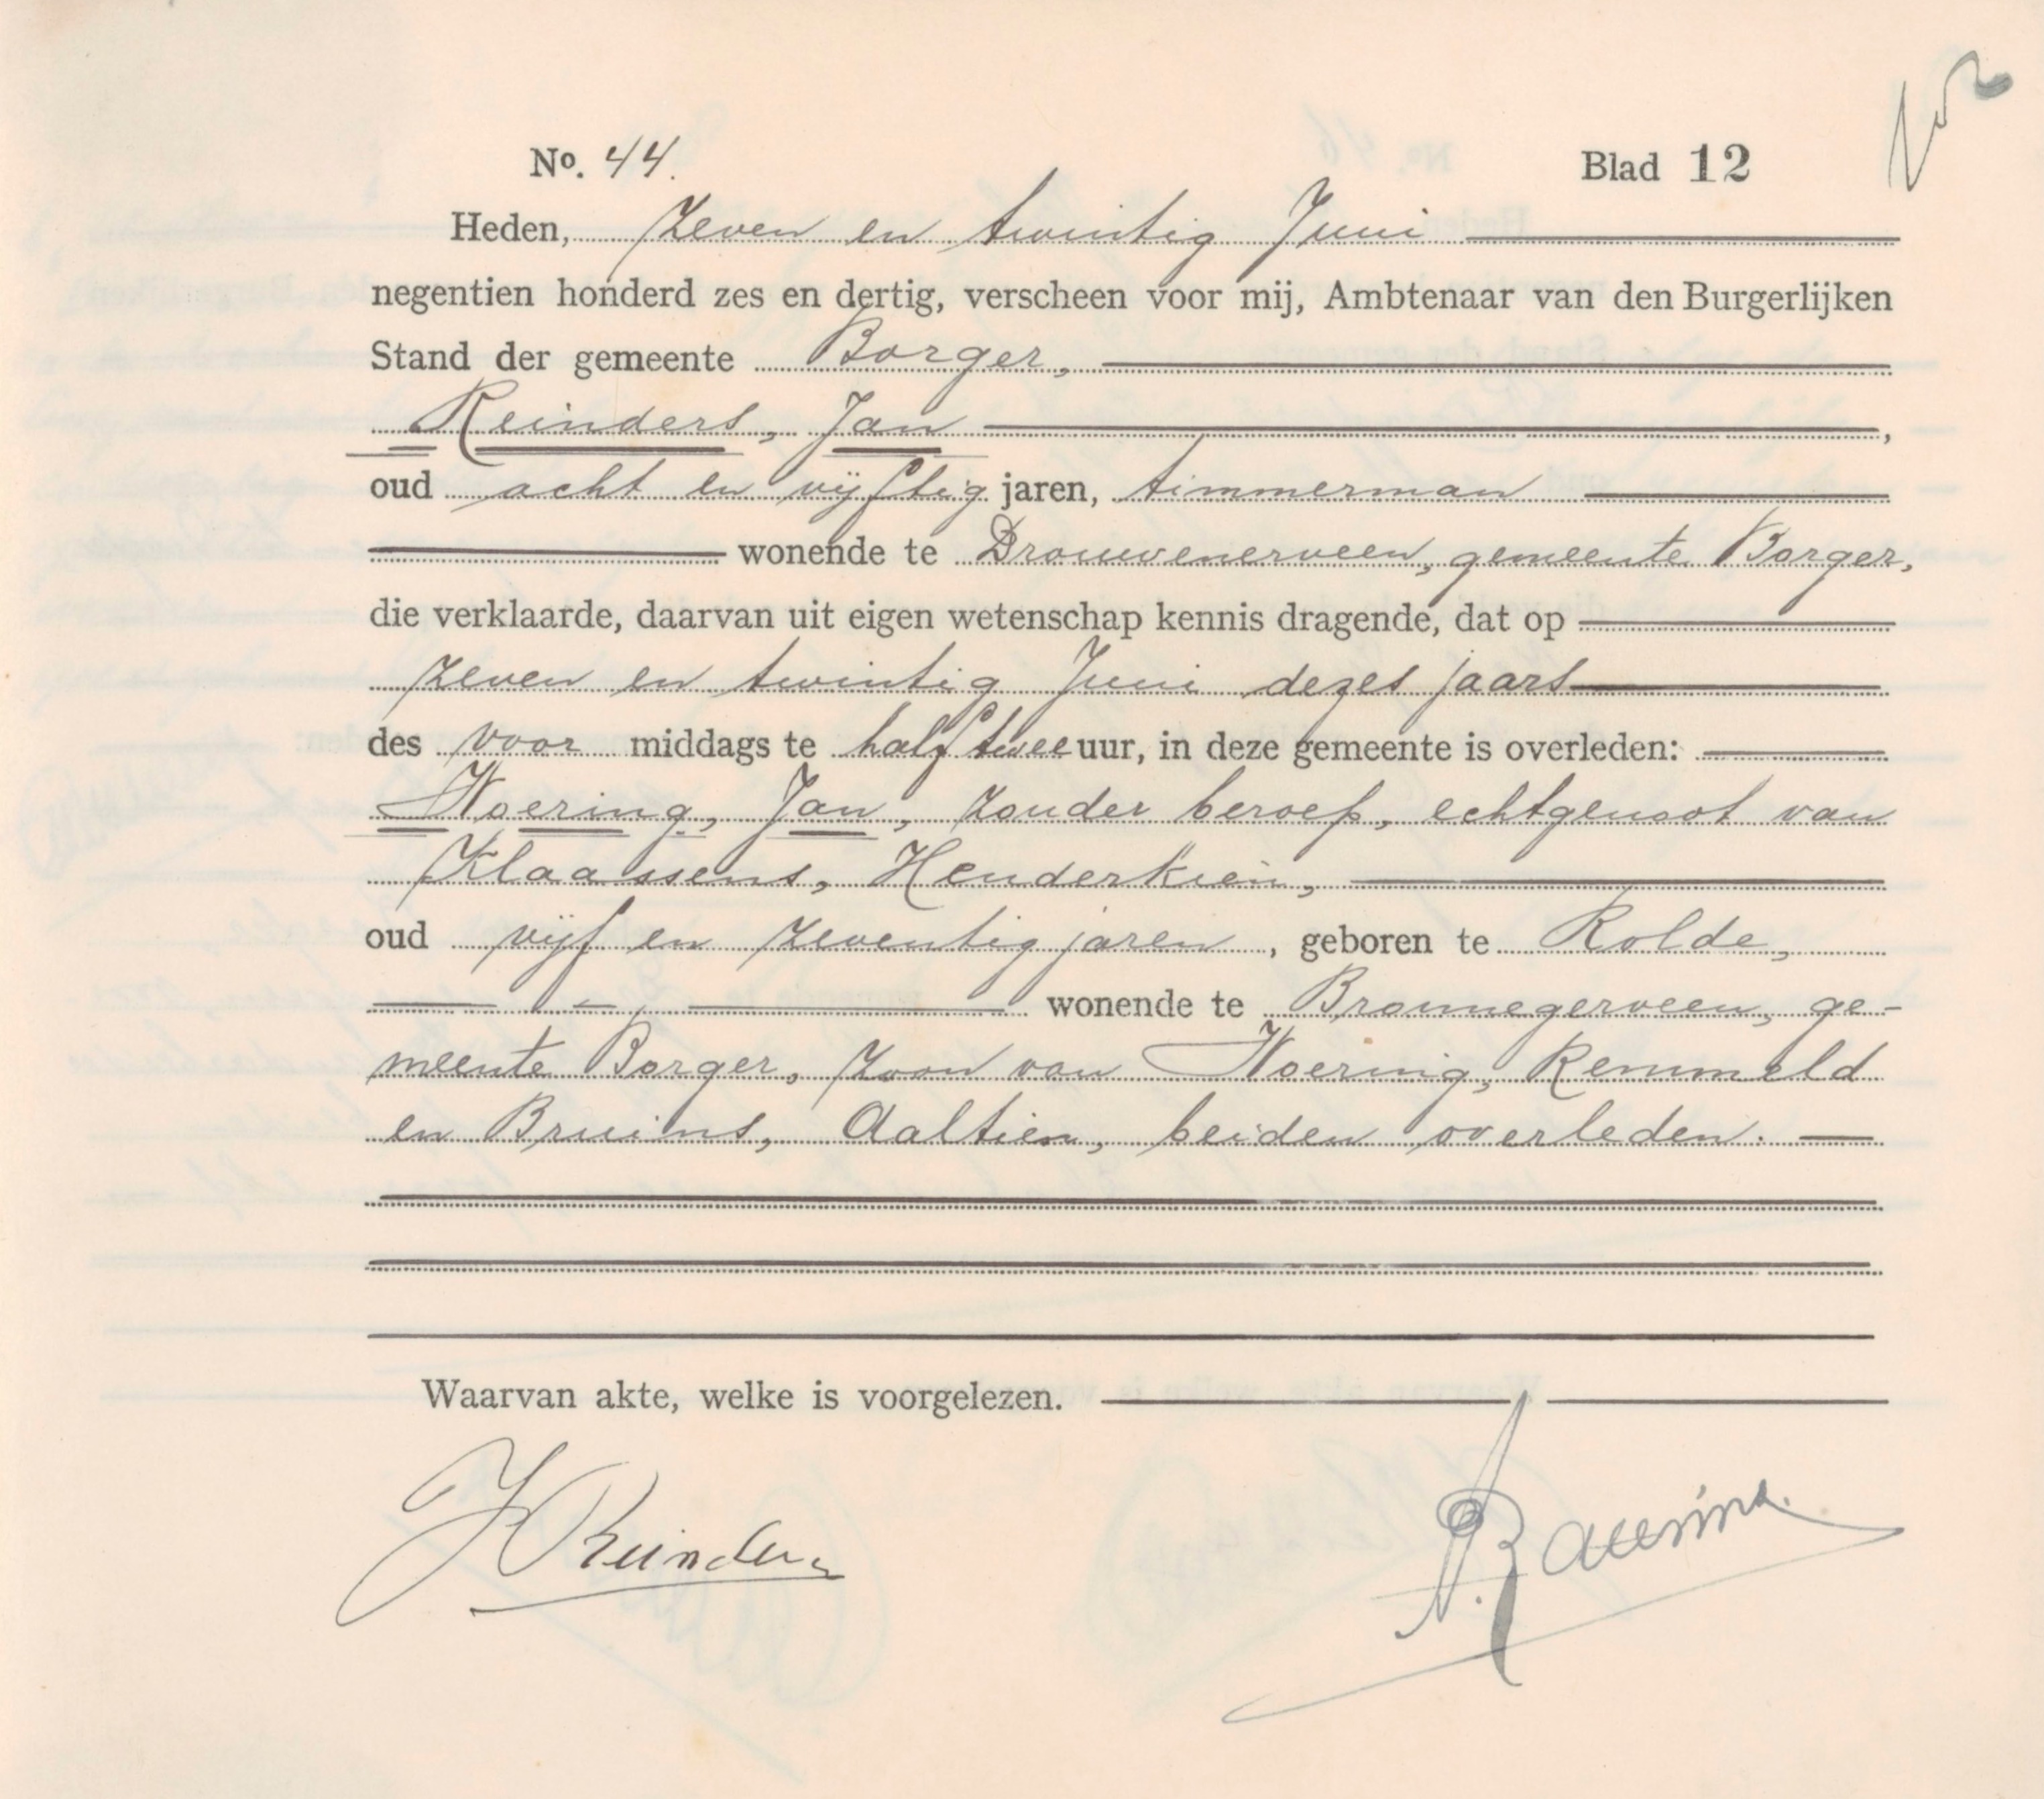 No. 44.
Blad 12
Heden, zeven en twintig Juni
negentien honderd zes en dertig, verscheen voor mij, Ambtenaar van den Burgerlijken
Stand der gemeente Borger,
Reinders, Jan ,
oud acht en vijftig jaren, timmerman
wonende te Drouwenerveen, gemeente Borger,
die verklaarde, daarvan uit eigen wetenschap kennis dragende, dat op
zeven en twintig Juni dezes jaars
des voor middags te half twee uur, in deze gemeente is overleden:
Woering, Jan, zonder beroep, echtgenoot van
Klaassens, Henderkien,
oud vijf en zeventig jaren, geboren te Rolde,
wonende te Bronnegerveen, ge-
meente Borger, zoon van Woering, Remmeld
en Bruins, Aaltien, beiden overleden.
Waarvan akte, welke is voorgelezen.
J Reinders